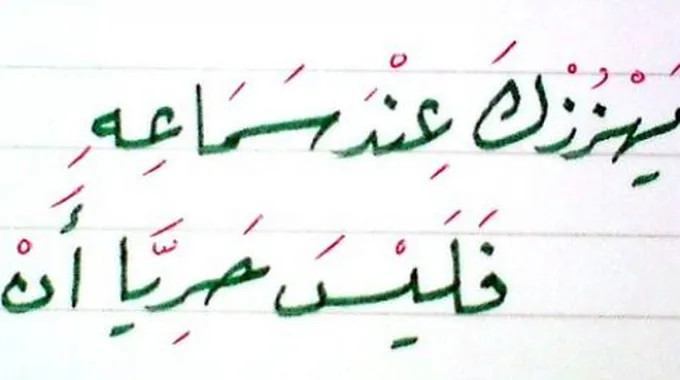 يَهْزُزْكَ عِنْدَ سَمَاعِهِ
فَلَيْسَ حَرِيَّا أَنْ